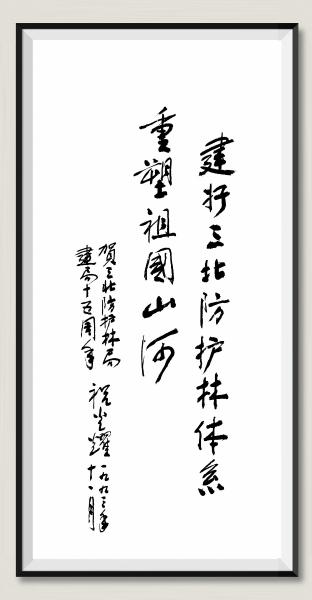 建好三北防护林体系
重塑祖國山河
賀三北防护林局
建局十五周年
祝光耀
一九九三年
十一月